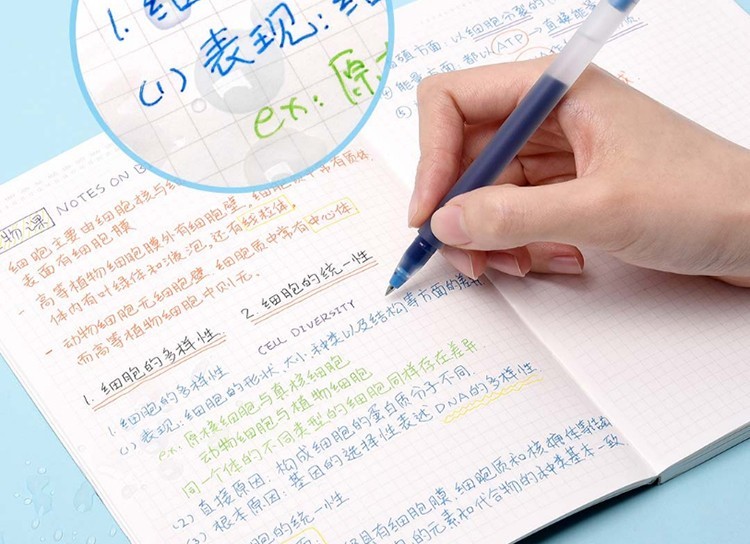 1. 细
(1) 表现: 细
ex: 原
物课 NOTES ON B
细胞主要由细胞核与
表面有细胞膜
- 高等植物细胞膜外有细胞壁, 细胞质中常有质体
体内有叶绿体和液泡, 还有线粒体.
- 动物细胞无细胞壁, 细胞质中常有中心体
而高等植物细胞中则无.
1. 细胞的多样性 2. 细胞的统一性
CELL DIVERSITY
1. 细胞的多样性
(1) 表现: 细胞的形状、大小、种类以及结构等方面的差异
ex: 原核细胞与真核细胞
动物细胞与植物细胞
同一个体的不同类型的细胞同样存在差异
(2) 直接原因: 构成细胞的蛋白质分子不同
(3) 根本原因: 基因的选择性表述 DNA的多样性
胞的统一性
具有细胞膜, 细胞质和核糖体等结构
的元素和化合物的种类基本一致
方面: 以细胞分裂的
④ 能量方面: 都以ATP→直接能
⑤